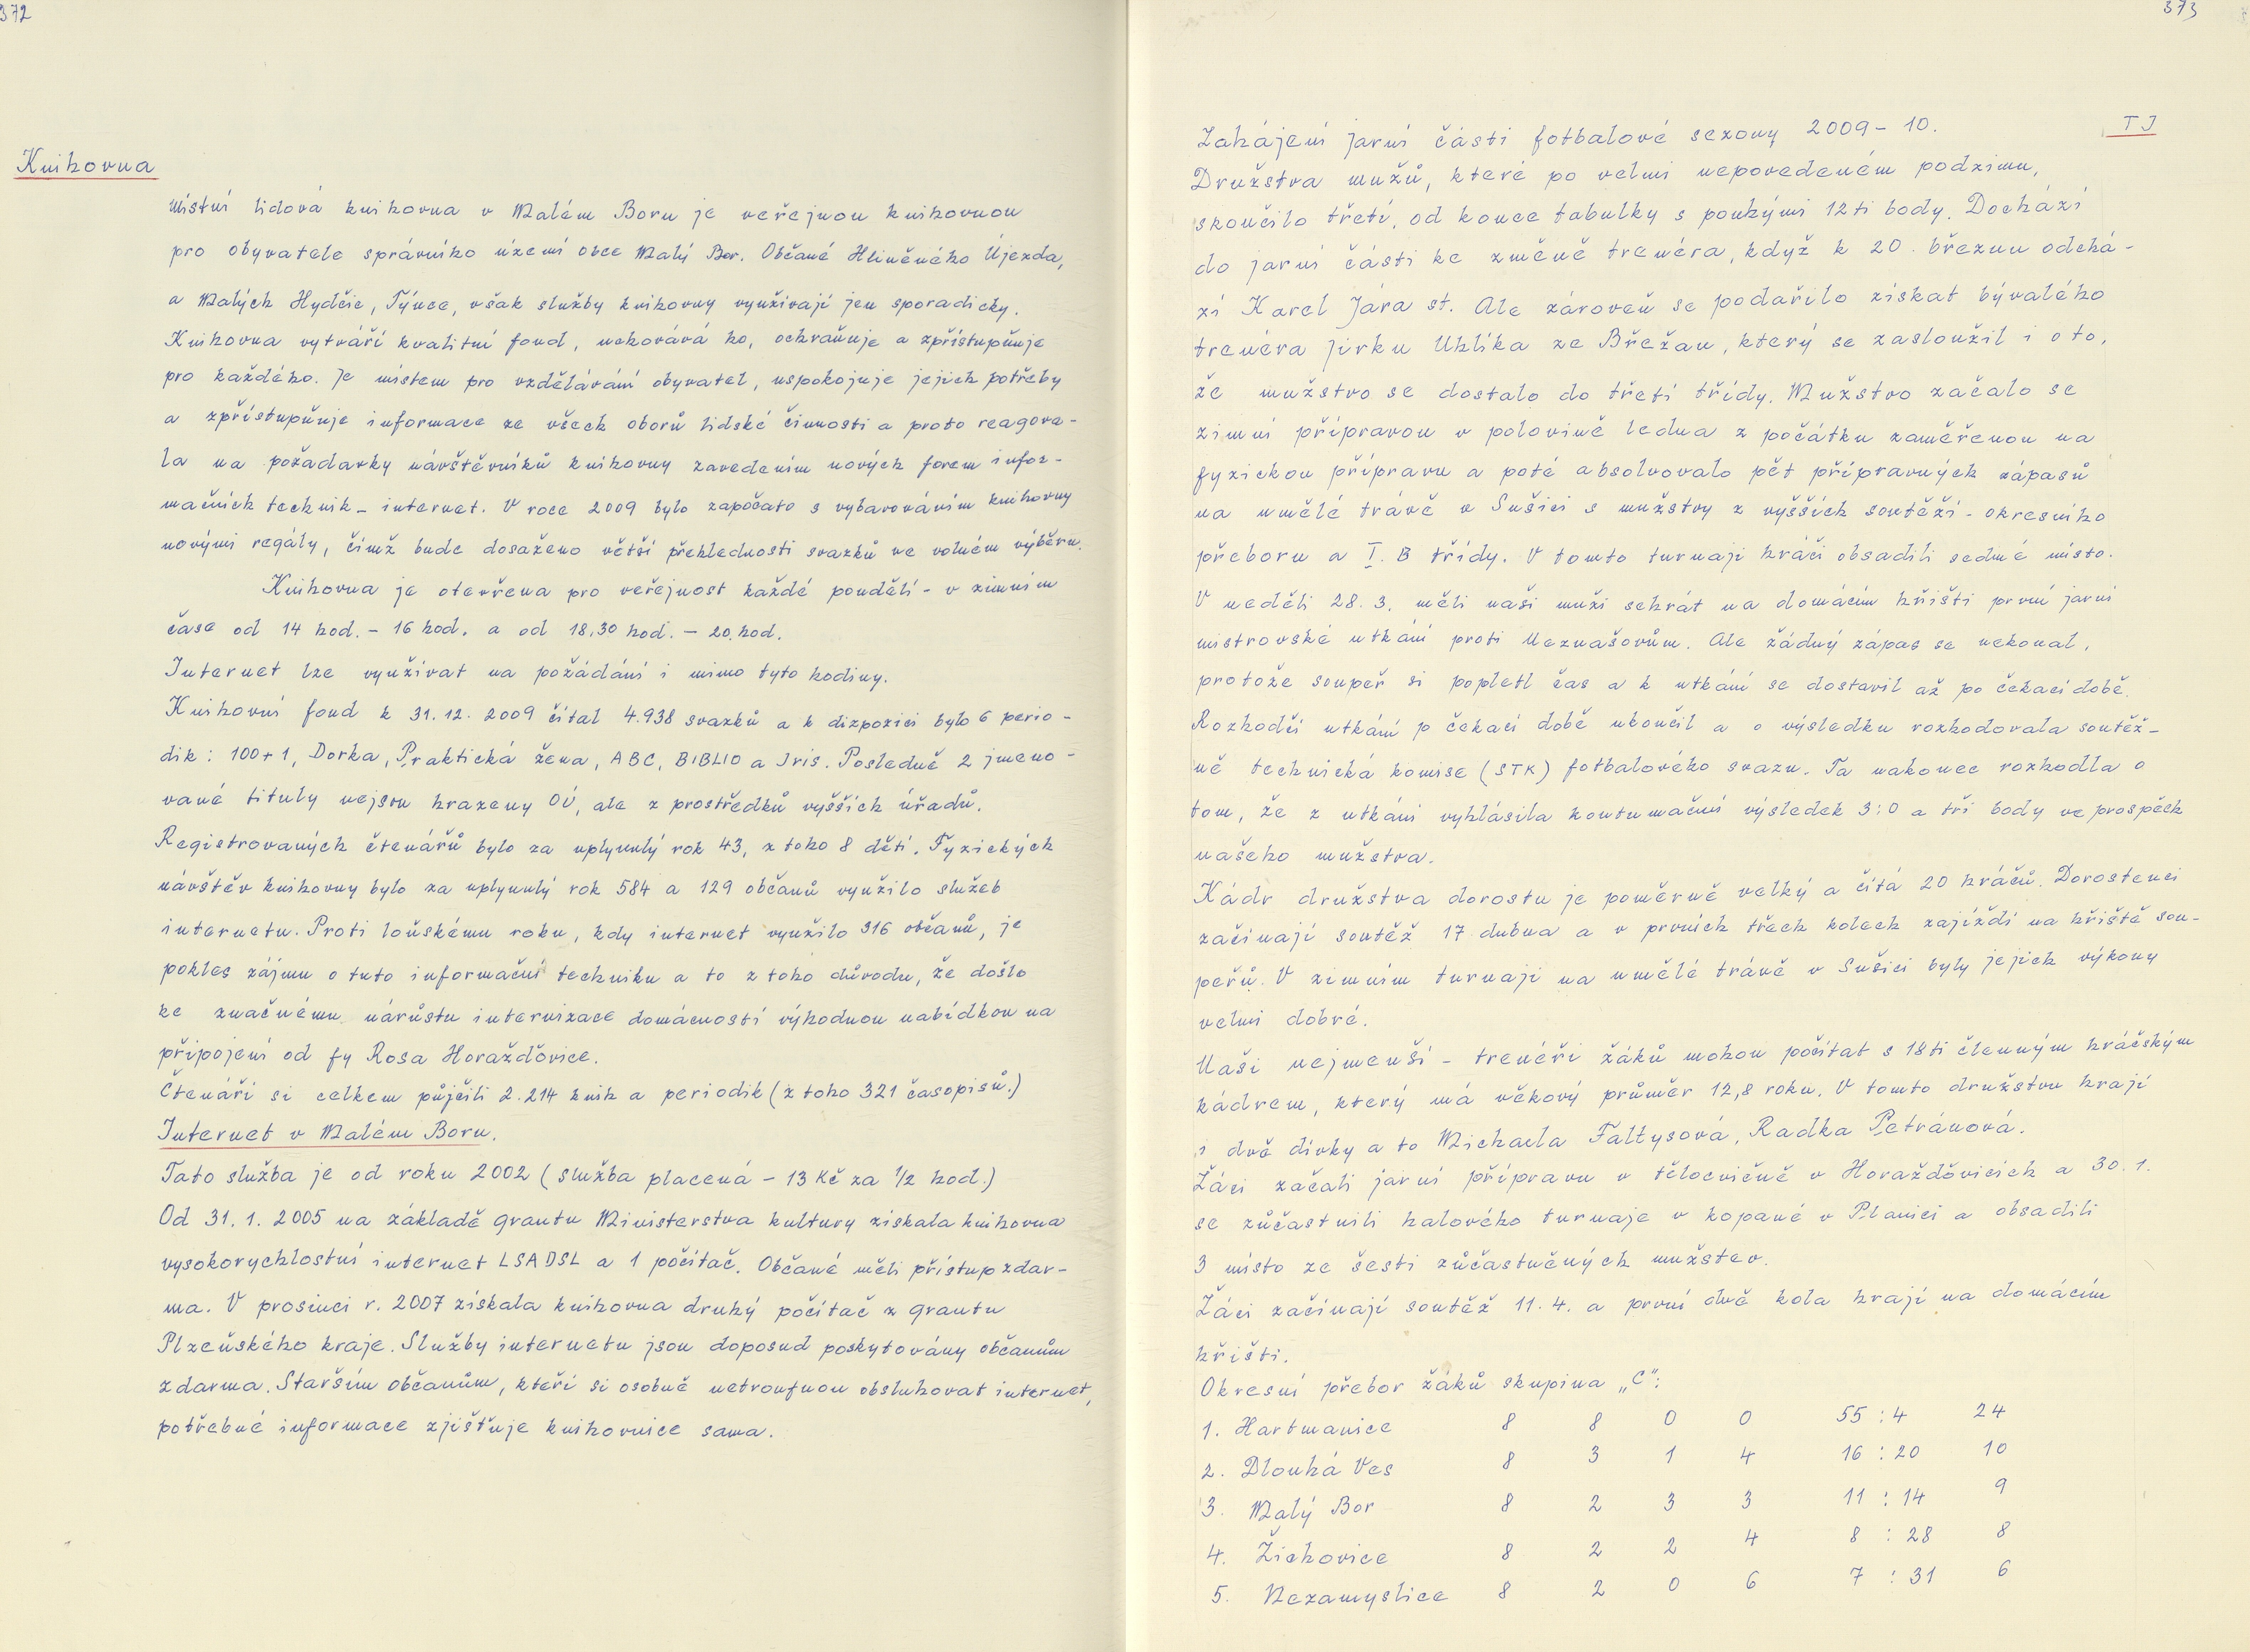 372
Knihovna
Místní lidová knihovna v Malém Boru je veřejnou knihovnou
pro obyvatele správního území obce Malý Bor. Občané Hliněného Újezda,
a Malých Hydčic, Týnce, však služby knihovny využívají jen sporadicky.
Knihovna vytváří kvalitní fond, uchovává ho, ochraňuje a zpřístupňuje
pro každého. Je místem pro vzdělávání obyvatel, uspokojuje jejich potřeby
a zpřístupňuje informace ze všech oborů lidské činnosti a proto reagova-
la na požadavky návštěvníků knihovny zavedením nových forem infor-
mačních technik - internet. V roce 2009 bylo započato s vybavováním knihovny
novými regály, čímž bude dosaženo větší přehlednosti svazků ve volném výběru.
Knihovna je otevřena pro veřejnost každé pondělí - v zimním
čase od 14 hod. - 16 hod. a od 18,30 hod. - 20. hod.
Internet lze využívat na požádání i mimo tyto hodiny.
Knihovní fond k 31. 12. 2009 čítal 4.938 svazků a k dizpozici bylo 6 perio-
dik: 100+1, Dorka, Praktická žena, ABC, BIBLIO a Iris. Posledně 2 jmeno-
vané tituly nejsou hrazeny OÚ, ale z prostředků vyšších úřadů.
Registrovaných čtenářů bylo za uplynulý rok 43, z toho 8 dětí. Fyzických
návštěv knihovny bylo za uplynulý rok 584 a 129 občanů využilo služeb
internetu. Proti loňskému roku, kdy internet využilo 316 občanů, je
pokles zájmu o tuto informační techniku a to z toho důvodu, že došlo
ke značnému nárůstu internizace domácností výhodnou nabídkou na
připojení od fy Rosa Horažďovice.
Čtenáři si celkem půjčili 2.214 knih a periodik (z toho 321 časopisů.)
Internet v Malém Boru.
Tato služba je od roku 2002 (služba placená - 13 Kč za 1/2 hod.)
Od 31. 1. 2005 na základě grantu Ministerstva kultury získala knihovna
vysokorychlostní internet LSADSL a 1 počítač. Občané měli přístup zdar-
ma. V prosinci r. 2007 získala knihovna druhý počítač z grantu
Plzeňského kraje. Služby internetu jsou doposud poskytovány občanům
zdarma. Starším občanům, kteří si osobně netroufnou obsluhovat internet,
potřebné informace zjišťuje knihovnice sama.
373
TJ
Zahájení jarní části fotbalové sezony 2009 - 10.
Družstva mužů, které po velmi nepovedeném podzimu,
skončilo třetí, od konce tabulky s pouhými 12ti body. Dochází
do jarní části ke změně trenéra, když k 20. březnu odchá-
zí Karel Jára st. Ale zároveň se podařilo získat bývalého
trenéra Jirku Uhlíka ze Břežan, který se zasloužil i o to,
že mužstvo se dostalo do třetí třídy. Mužstvo začalo se
zimní přípravou v polovině ledna z počátku zaměřenou na
fyzickou přípravu a poté absolvovalo pět přípravných zápasů
na umělé trávě v Sušici s mužstvy z vyšších soutěží - okresního
přeboru a I. B třídy. V tomto turnaji hráči obsadili sedmé místo.
V neděli 28. 3. měli naši muži sehrát na domácím hřišti první jarní
mistrovské utkání proti Neznašovům. Ale žádný zápas se nekonal,
protože soupeř si popletl čas a k utkání se dostavil až po čekací době.
Rozhodčí utkání p čekací době ukončil a o výsledku rozhodovala soutěž-
ně technická komise (STK) fotbalového svazu. Ta nakonec rozhodla o
tom, že z utkání vyhlásila kontumační výsledek 3:0 a tři body ve prospěch
našeho mužstva.
Kádr družstva dorostu je poměrně velký a čítá 20 hráčů. Dorostenci
začínají soutěž 17 dubna a v prvních třech kolech zajíždí na hřiště sou-
peřů. V zimním turnaji na umělé trávě v Sušici byly jejich výkony
velmi dobré.
Naši nejmenší - trenéři žáků mohou počítat s 18ti členným hráčským
kádrem, který má věkový průměr 12,8 roku. V tomto družstvu hrají
i dvě dívky a to Michaela Faltysová, Radka Petránová.
Žáci začali jarní přípravu v tělocvičně v Horažďovicích a 30. 1.
se zůčastnili halového turnaje v kopané v Plánici a obsadili
3 místo ze šesti zůčastněných mužstev.
Žáci začínají soutěž 11. 4. a první dvě kola hrají na domácím
hřišti.
Okresní přebor žáků skupina „C":
1. Hartmanice 8 8 0 0 55 : 4 24
2. Dlouhá Ves 8 3 1 4 16 : 20 10
3. Malý Bor 8 2 3 3 11 : 14 9
4. Žichovice 8 2 2 4 8 : 28 8
5. Nezamyslice 8 2 0 6 7 : 31 6